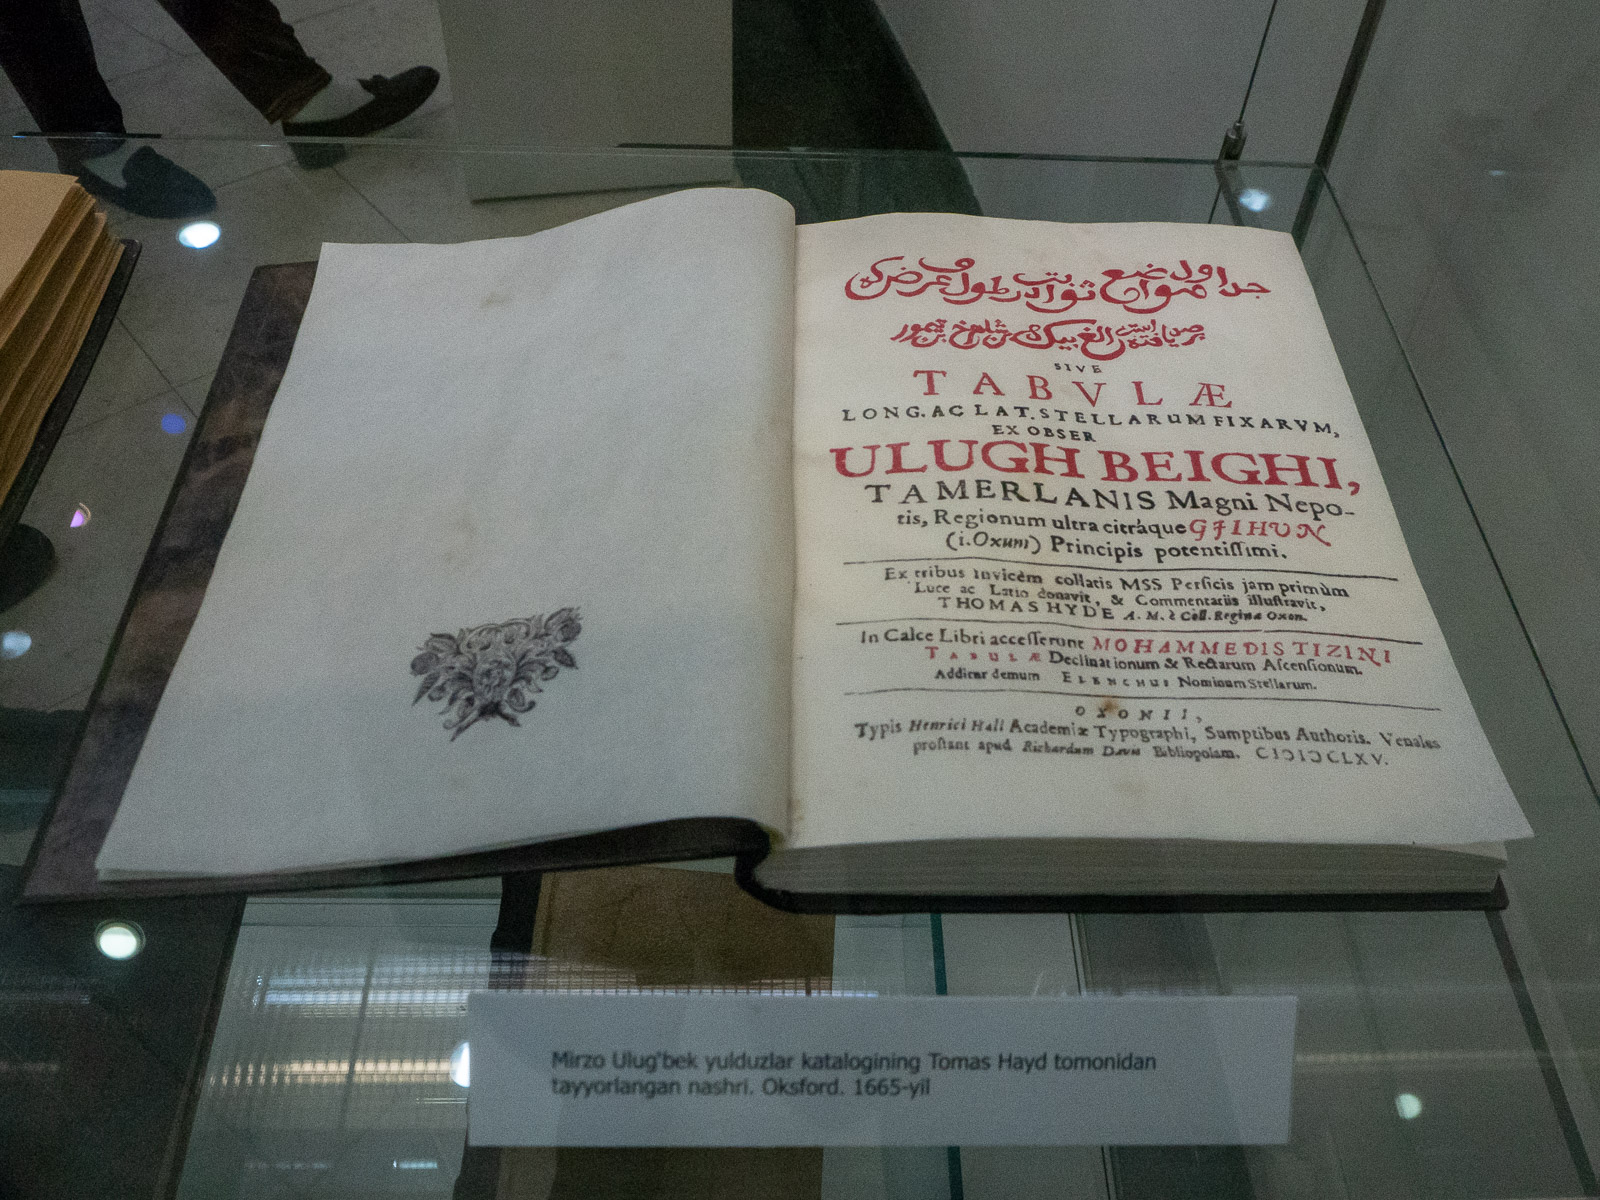 جداول مواضع ثوابت در طول و عرض كه
برصد يافته است الغ بيك بن شاهرخ بن تيمور
SIVE
TABVLÆ
LONG. AC LAT. STELLARUM FIXARVM,
EX OBSER
ULUGH BEIGHI,
TAMERLANIS Magni Nepo-
tis, Regionum ultra citráque GJIHUN
(i. Oxum) Principis potentiſſimi.
Ex tribus invicèm collatis MSS Perſicis jam primùm
Luce ac Latio donavit, & Commentariis illuſtravit,
THOMAS HYDE A. M. è Coll. Reginæ Oxon.
In Calce Libri acceſſerunt MOHAMMEDIS TIZINI
TABULÆ Declinationum & Rectarum Aſcenſionum.
Additur demum ELENCHUS Nominum Stellarum.
OXONII,
Typis Henrici Hall Academiæ Typographi, Sumptibus Authoris. Venales
proſtant apud Richardum Davis Bibliopolam. CIↃIↃCLXV.
Mirzo Ulug'bek yulduzlar katalogining Tomas Hayd tomonidan
tayyorlangan nashri. Oksford. 1665-yil